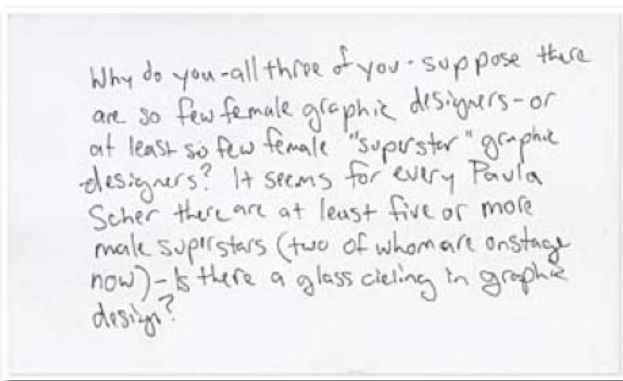 Why do you - all three of you - suppose there
are so few female graphic designers - or
at least so few female "superstar" graphic
designers? It seems for every Paula
Scher there are at least five or more
male superstars (two of whom are onstage
now) - Is there a glass cieling in graphic
design?